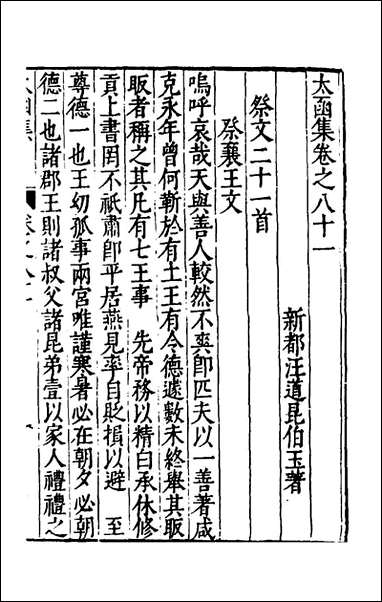 太函集卷之八十一
新都汪道昆伯玉著
祭文二十一首
祭襄王文
嗚呼哀哉天與善人較然不爽卽匹夫以一善著咸
克永年曾何靳於有土王有令德遽數未終舉其販
販者稱之其凡有七王事　先帝務以精白承休修
貢上書罔不祗肅卽平居燕見率自貶損以避　至
尊德一也王幼孤事兩宮唯謹寒暑必在朝夕必朝
德二也諸郡王則諸叔父諸昆弟壹以家人禮禮之